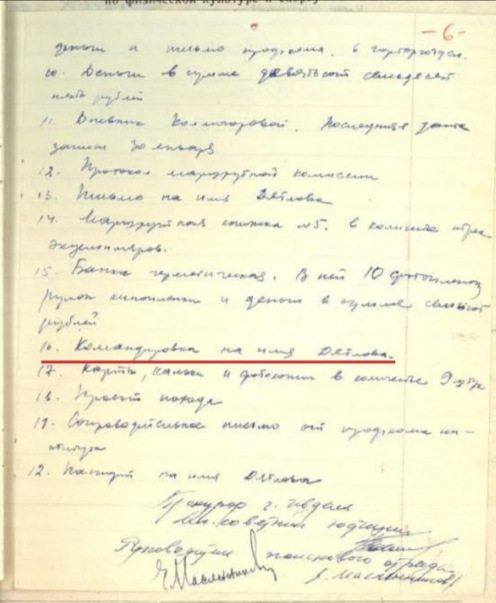 по физической культуре и спорту
-6-
деньги и письмо профкома. в горторготдел.
10. Деньги в сумме девятьсот семьдесят
пять рублей
11. Дневник Колмогоровой. Последняя дата
записи 30 января
12. Протокол маршрутной комиссии
13. Письмо на имя Дятлова
14. Маршрутная книжка №5. в количестве трех
экземпляров.
15. Банка герметическая. В ней 10 фотопленок
рулон кинопленки и деньги в сумме семьсот
рублей
16. Командировка на имя Дятлова.
17. Карты, кальки и фотокопии в количестве 9 штук
18. Проект похода
19. Сопроводительное письмо от профкома ин-
ститута
12. Паспорт на имя Дятлова
Прокурор г. Ивделя
Мл. советник юстиции
Руководитель поискового отряда
Е. Масленников